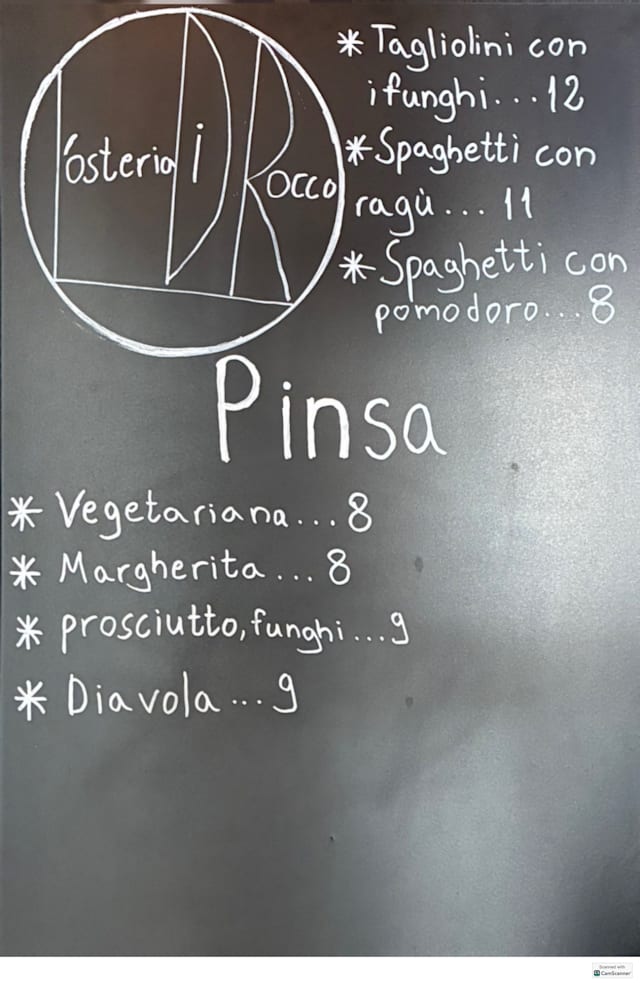 l'osteria Di Rocco
* Tagliolini con
i funghi...12
* Spaghetti con
ragù... 11
* Spaghetti con
pomodoro...8
Pinsa
* Vegetariana...8
* Margherita...8
* prosciutto, funghi...9
* Diavola...9
Scanned with
CamScanner